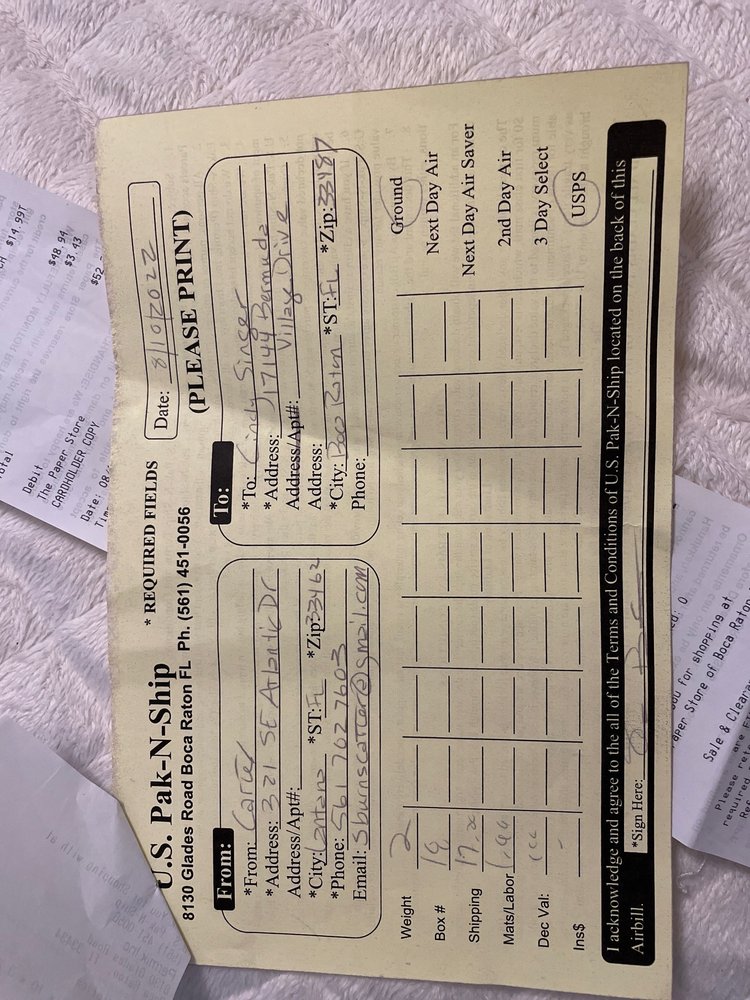 U.S. Pak-N-Ship
* REQUIRED FIELDS
Date: 8/10/2022
8130 Glades Road Boca Raton FL Ph. (561) 451-0056
(PLEASE PRINT)
From:
*From: Carter
*Address: 321 SE Atlantic Dr
Address/Apt#:
*City: Lantana *ST: FL *Zip: 33462
*Phone: 561 702 7603
Email: Sburnscarter@gmail.com
To:
*To: Cindy Singer
*Address: 17144 Bermuda
Address/Apt#: Village Drive
Address:
*City: Boca Raton *ST: FL *Zip: 33487
Phone:
Weight 2
Box # 18
Shipping
Mats/Labor
Dec Val:
Ins$ -
Ground
Next Day Air
Next Day Air Saver
2nd Day Air
3 Day Select
USPS
I acknowledge and agree to the all of the Terms and Conditions of U.S. Pak-N-Ship located on the back of this
Airbill.
*Sign Here:
$14.99T
$48.94
$3.43
$52
Debit
The Paper Store
CARDHOLDER COPY
Date: 08/
for shopping at
aper Store of Boca Raton
Sale & Cleara
Please
required